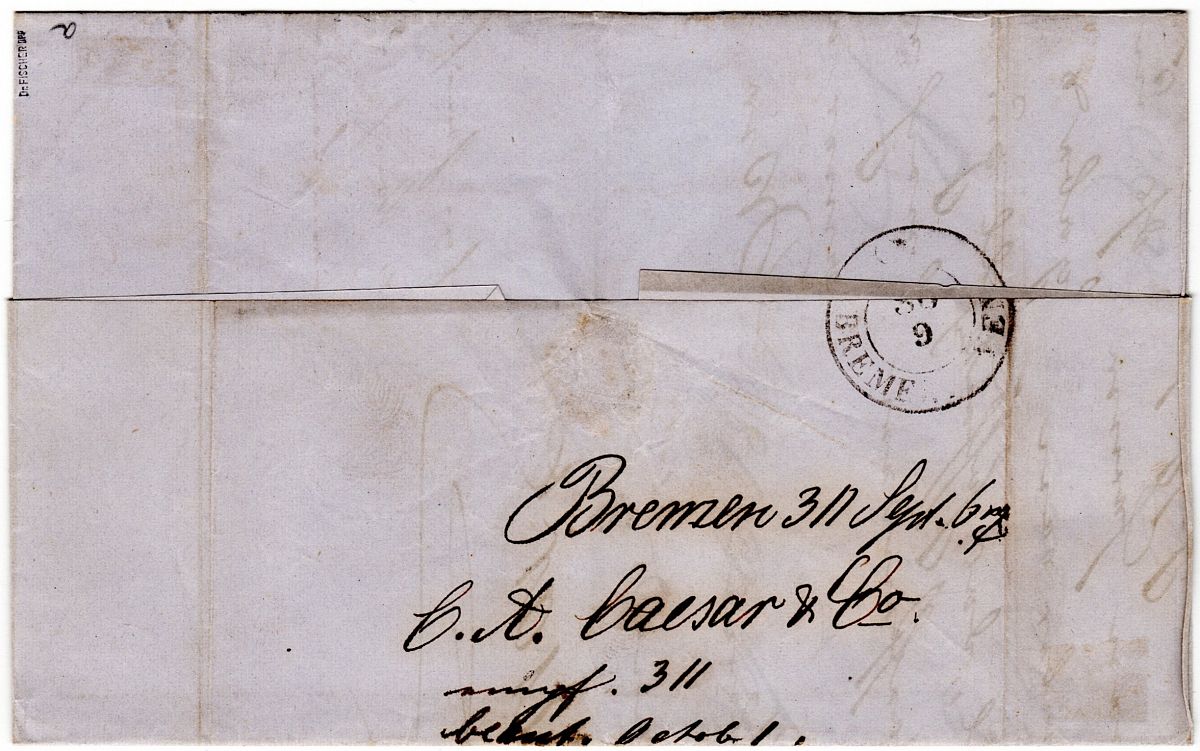 Dr. FISCHER BPP
a
30
9
BREMEN
Bremen 30 Sept.
C. A. Caesar & Co.
empf. 30
Octob. 1.